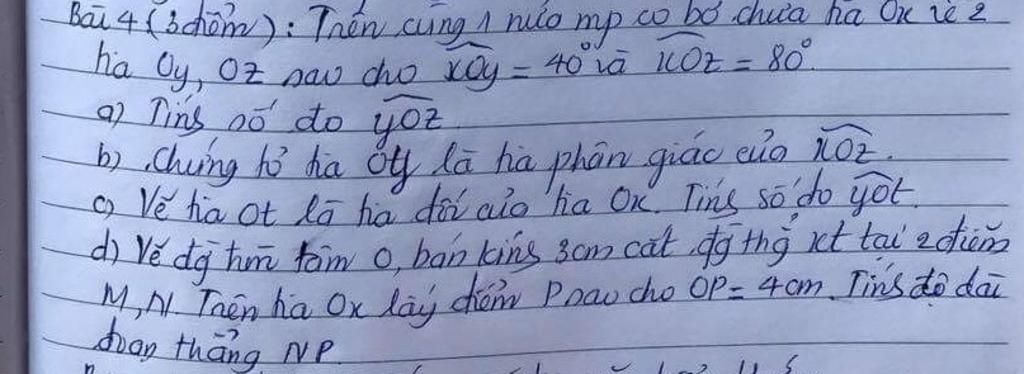 Bài 4 (3 điểm): Trên cùng 1 nửa mp có bờ chứa tia Ox vẽ 2
tia Oy, Oz sao cho xOy = 40° và xOz = 80°.
a) Tính số đo yOz
b) Chứng tỏ tia Oy là tia phân giác của xOz.
c) Vẽ tia Ot là tia đối của tia Ox. Tính số đo yOt.
d) Vẽ đg tròn tâm O, bán kính 3cm cắt đg thg xt tại 2 điểm
M, N. Trên tia Ox lấy điểm P sao cho OP = 4cm. Tính độ dài
đoạn thẳng NP